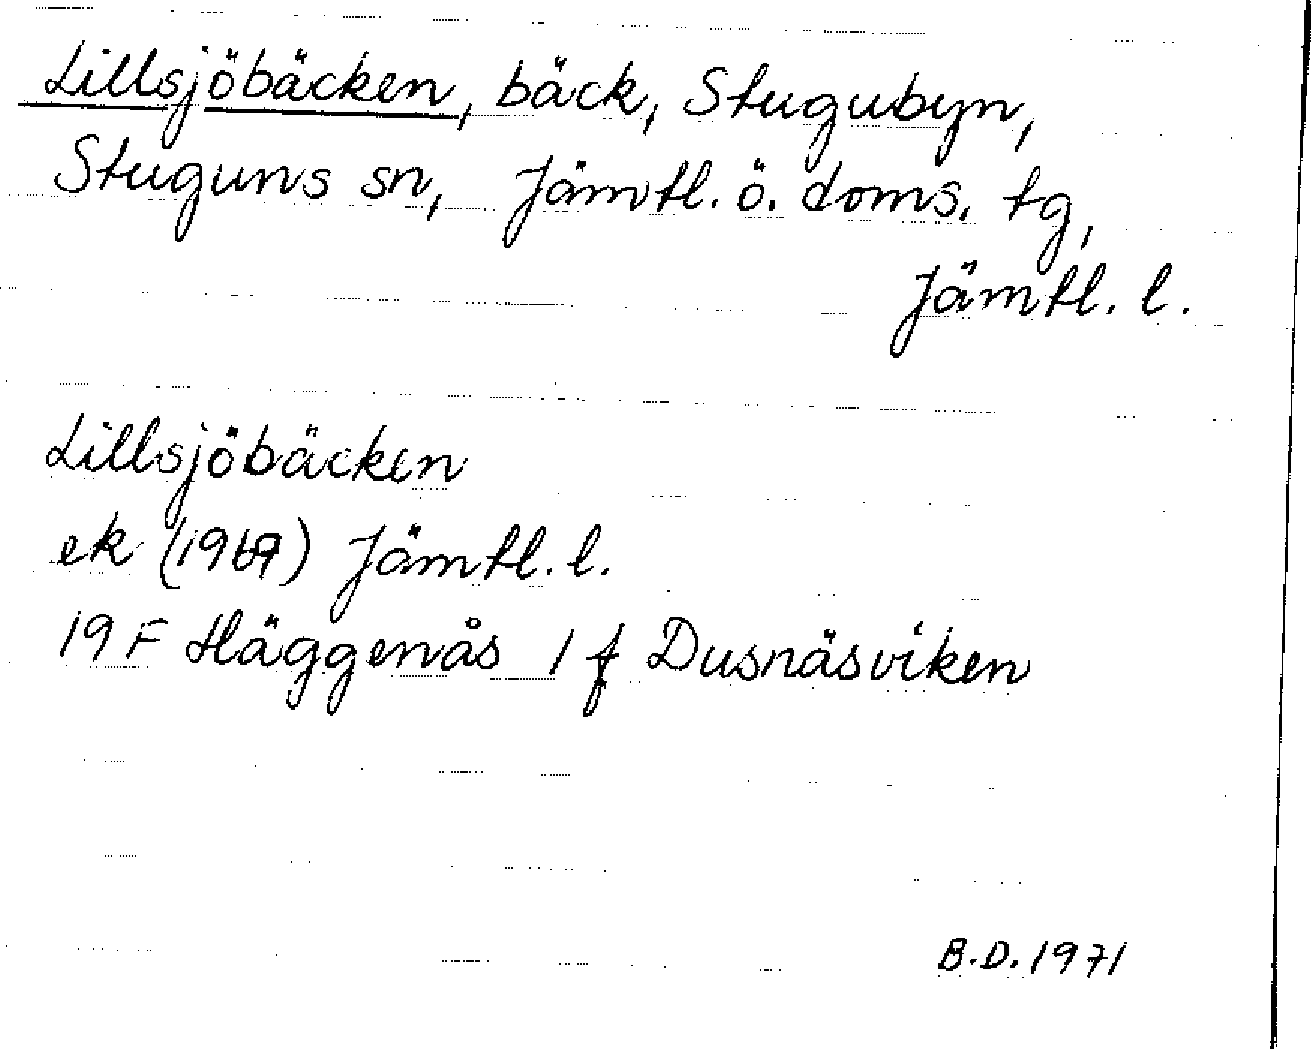 Lillsjöbäcken, bäck, Stugubyn,
Stuguns sn, Jämtl. ö. doms. tg,
Jämtl. l.
Lillsjöbäcken
ek (1969) Jämtl. l.
19 F Häggenås 1 f Dusnäsviken
B.D. 1971